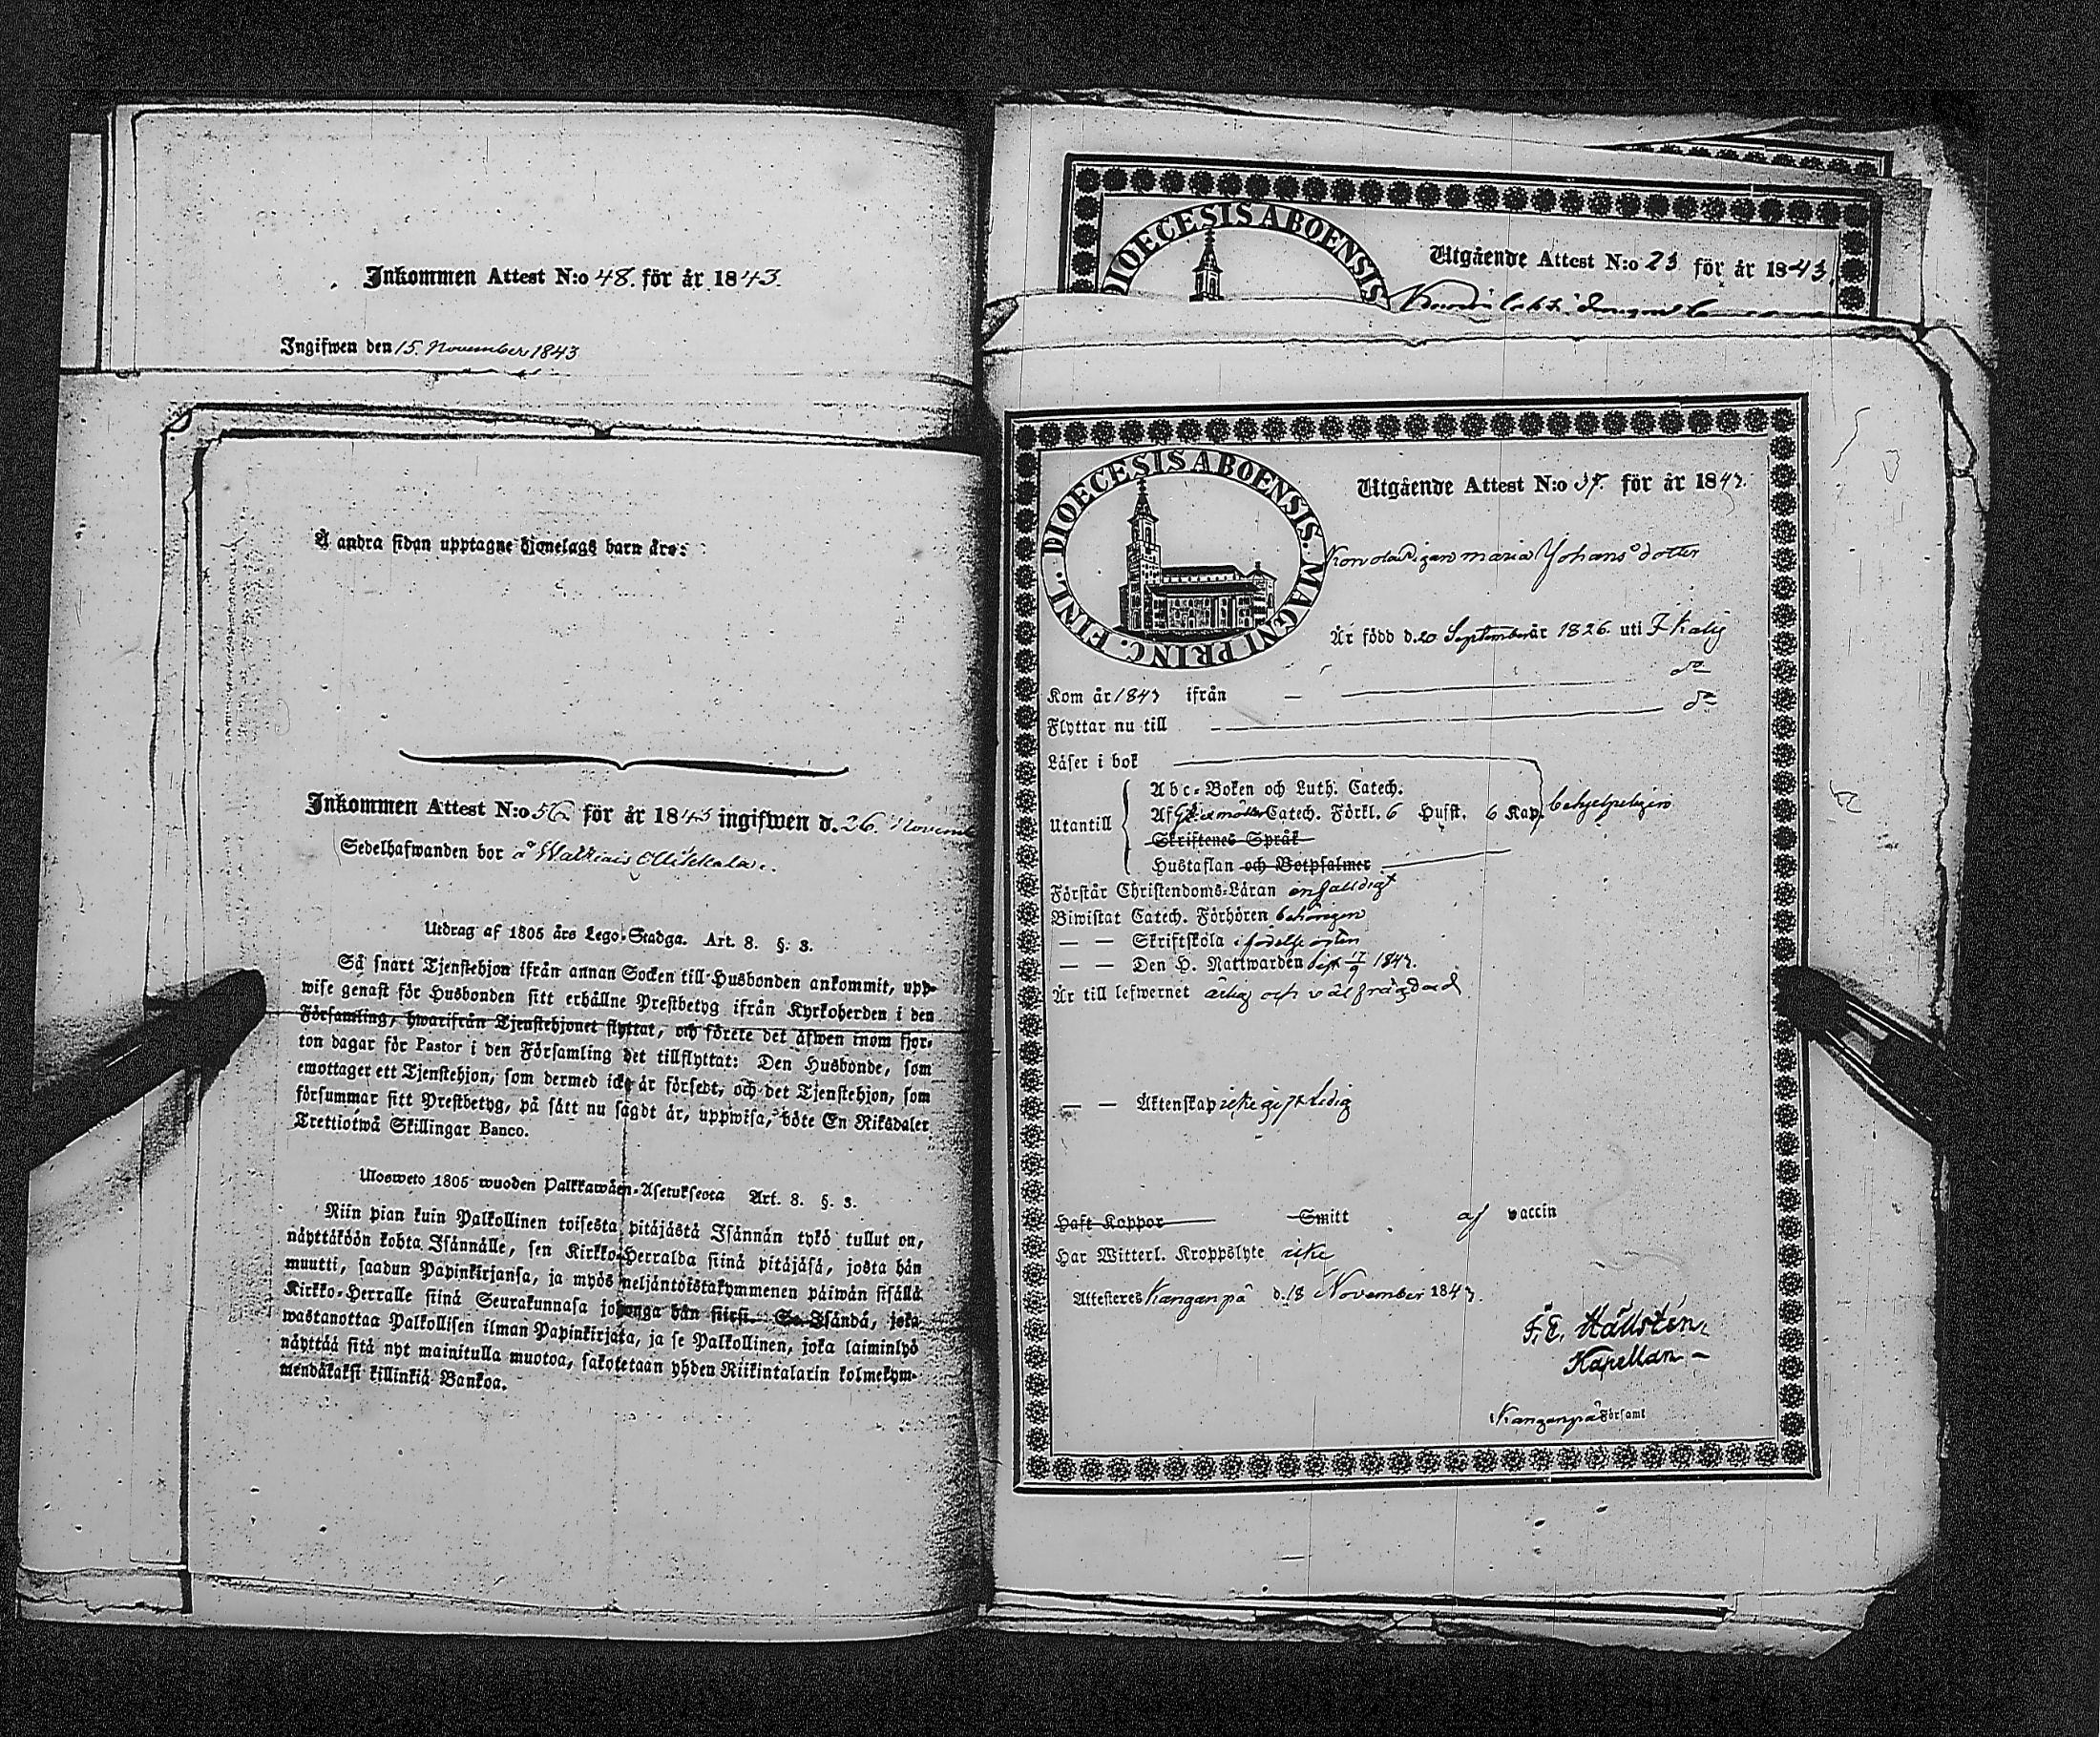 Inkommen Attest N:o 48. för år 1843.
Ingifwen den 15. November 1843
Å andra sidan upptagne Hjonelags barn äro:
Inkommen Attest N:o 56. för år 1843 ingifwen d. 26. Novemb
Sedelhafwanden bor å
Utdrag af 1805 års Lego-Stadga. Art. 8. §. 3.
Så snart Tjenstehjon ifrån annan Socken till Husbonden ankommit, upp-
wise genast för Husbonden sitt erhållne Prestbetyg ifrån Kyrkoherden i den
Församling, hwarifrån Tjenstehjonet flyttat, och förete det äfwen inom fjor-
ton dagar för Pastor i den Församling det tillflyttat: Den Husbonde, som
emottager ett Tjenstehjon, som dermed icke är försedt, och det Tjenstehjon, som
försummar sitt Prestbetyg, på sätt nu sagdt är, uppwisa, böte En Riksdaler
Trettiotwå Skillingar Banco.
Ulosweto 1805 wuoden Palkkawäen-Asetuksesta Art. 8. §. 3.
Niin pian kuin Palkollinen toisesta pitäjästä Isännän tykö tullut on,
näyttäköön kohta Isännälle, sen Kirkko-Herralda siinä pitäjäsä, josta hän
muutti, saadun Papinkirjansa, ja myös neljäntoistakymmenen päiwän sisällä
Kirkko-Herralle siinä Seurakunnasa johonga hän siirsi. Se Isändä, joka
wastanottaa Palkollisen ilman Papinkirjata, ja se Palkollinen, joka laiminlyö
näyttää sitä nyt mainitulla muotoa, sakotetaan yhden Riikintalarin kolmekym-
mendäkaksi killinkiä Bankoa.
DIOECESIS ABOENSIS
Utgående Attest N:o 23 för år 1843.
DIOECESIS ABOENSIS. MAGNI PRINC. FINL.
Utgående Attest N:o 37. för år 1843.
Maria Johansdotter
Är född d. 20 September år 1826. uti Ikalis
Kom år 1843 ifrån — do
Flyttar nu till — do
Läser i bok
Abc-Boken och Luth. Catech.
Utantill Af Catech. Förkl. 6 Husst. 6 Kap. behjelpeligen
Skriftenes Språk
Hustaflan och Botpsalmer
Förstår Christendoms-Läran enfaldigt
Biwistat Catech. Förhören behörigen
— — Skriftskola i födelse orten
— — Den H. Nattwarden sist 17/9 1843.
Är till lefwernet ärlig och välfrägdad
— — Äktenskap icke gift ledig
Haft Koppor Smitt af vaccin
Har Witterl. Kroppslyte icke
Attesteres Kanganpä d. 18 November 1843.
F. E. Hällstén,
Kapellan
i Kanganpä Församl